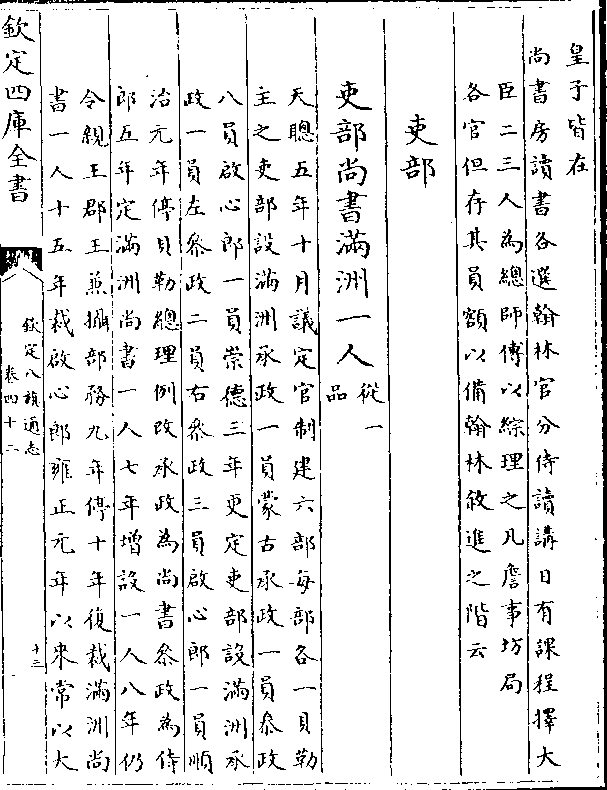 皇子皆在
尚書房讀書各選翰林官分侍讀講日有課程擇大
臣二三人為總師傅以綜理之凡詹事坊局
各官但存其員額以備翰林敘進之階云
吏部
吏部尚書滿洲一人從一品
天聰五年十月議定官制建六部每部各一貝勒
主之吏部設滿洲承政一員蒙古承政一員參政
八員啟心郎一員崇德三年更定吏部設滿洲承
政一員左參政二員右參政三員啟心郎一員順
治元年停貝勒總理例改承政為尚書參政為侍
郎五年定滿洲尚書一人七年增設一人八年仍
令親王郡王兼攝部務九年停十年復裁滿洲尚
書一人十五年裁啟心郎雍正元年以來常以大
欽定四庫全書
欽定八旗通志
卷四十二
十三